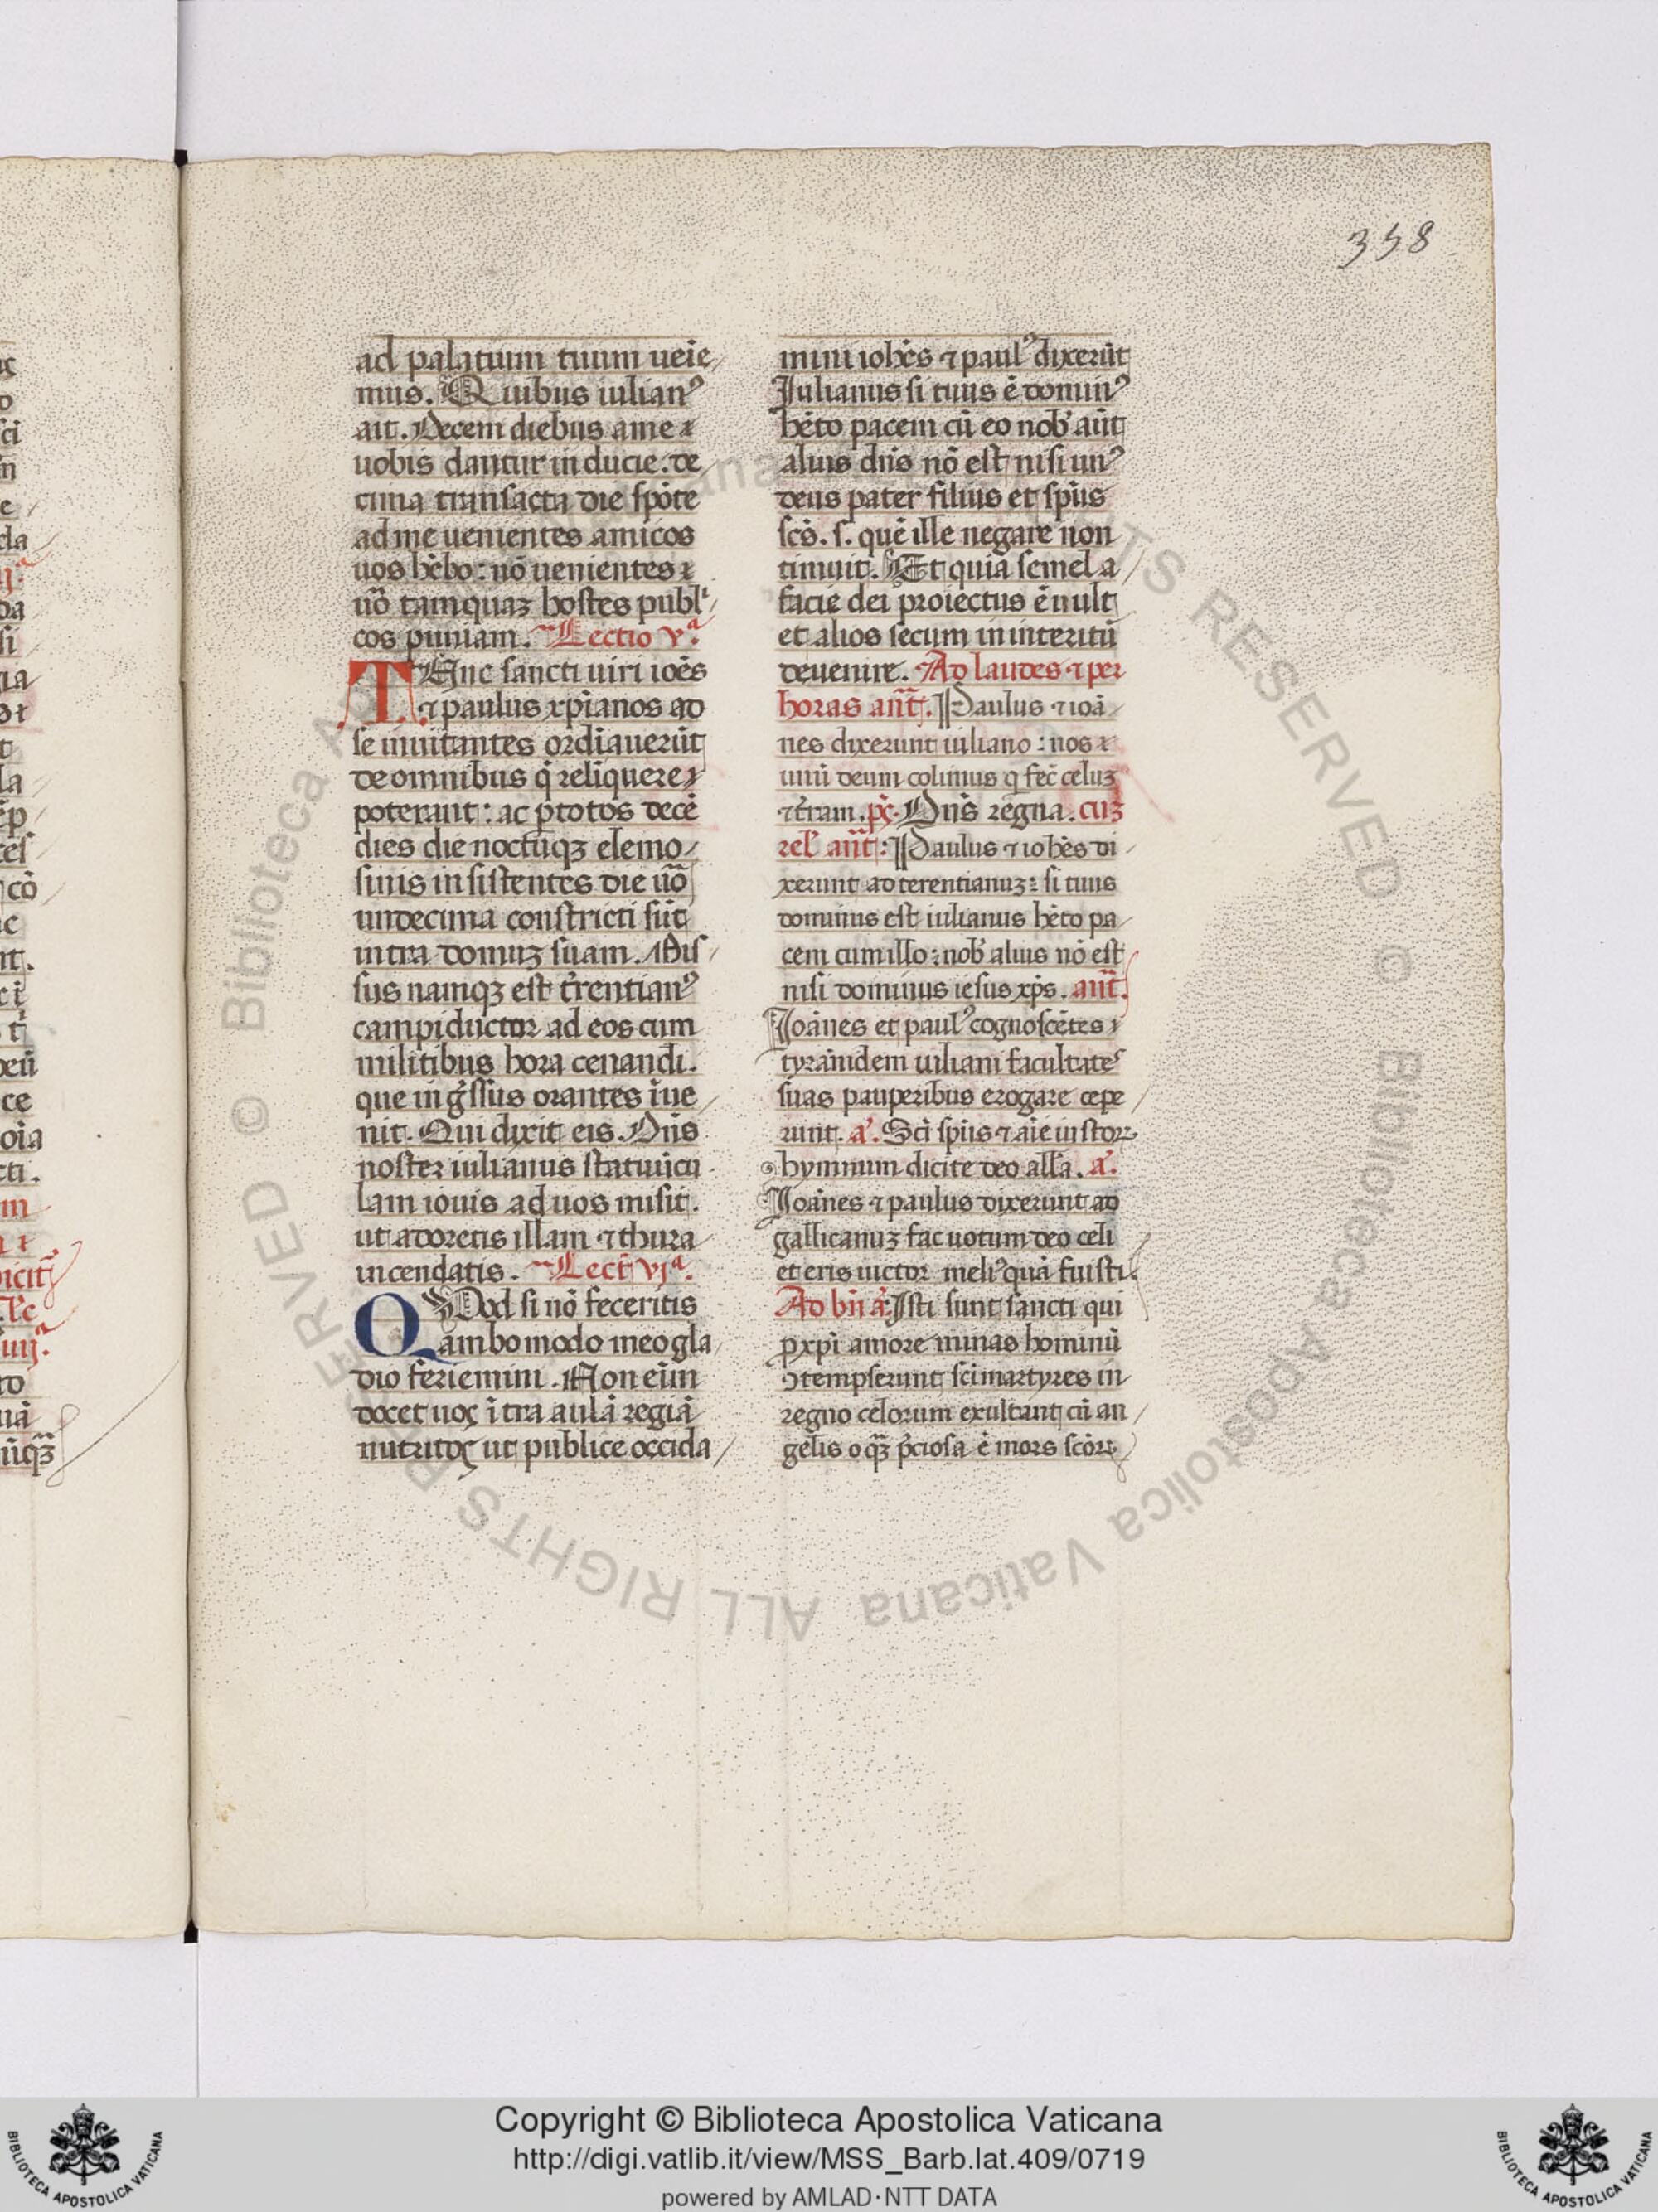 358
ad palatium tuum ueıe
mus. Quibus iulianꝰ
ait. Decem diebus a me
uobis dantur inducie. de
cima transacta die spōte
ad me uenientes amicos
uos hēbo: nō uenientes
uō tamquaꝫ hostes publi
cos puniam. Lectio vª.
TUnc sancti uiri ioēs
⁊ paulus xp̄ianos ad
se inuitantes ordīauerūt
de omnibus q̄ relīquere
poterant: ac ꝑ totos decē
dies die noctuqꝫ elemo
sinis insistentes die uō
undecima constricti sūt
intra domuꝫ suam. Mis
sus namqꝫ est t̄rentianꝰ
campiductor ad eos cum
militibus hora cenandi.
que ingr̄ssus orantes īue
nit. Qui dixit eis. Dn̄s
noster iulianus statuūcu
lam iouis ad uos misit.
ut adoretis illam ⁊ thura
incendatis. Lect̄ vjª.
QUod si nō feceritis
ambo modo meo gla
dio feriemini. Non eīm
docet uos ītra aulā regiā
nutritos ut publice occida
mini iohēs ⁊ paulꝰ dixerūt
Iulianus si tuus ē dominꝰ
hēto pacem cū eo nob̄ aūt
alius dn̄s nō est nisi unꝰ
deus pater filius et sp̄us
scs̄. s. quē ille negare non
timuit. Et quia semel a
facie dei proiectus ē uult
et alios secum in interitū
deuenire. Ad laudes ⁊ per
horas ant̄. Paulus ⁊ ioā
nes dixerunt iuliano: nos
unū deum colimus q fec̄ celuꝫ
⁊ t̄ram. ps̄. Dn̄s regna. cuꝫ
rel̄ ant̄: Paulus ⁊ iohēs di
xerunt ad terentianuꝫ: si tuus
dominus est iulianus hēto pa
cem cum illo: nob̄ alius nō est
nisi dominus iesus xp̄s. ant̄.
Ioānes et paulꝰ cognoscētes
tyrānidem iuliani facultates
suas pauperibus erogare cepe
runt. a̅. Sc̄i sp̄us ⁊ aīe iustoꝝ
hymnum dicite deo all̄a. a̅.
Ioānes ⁊ paulus dixerunt ad
gallicanuꝫ fac uotum deo celi
et eris uictor meliꝰ quā fuisti.
Ad bn̄ a̅: Isti sunt sancti qui
ꝓ xp̄i amore minas hominū
ↄtempserunt sc̄i martyres in
regno celorum exultant cū an
gelis o qꝫ p̄ciosa ē mors sc̄oꝝ
Copyright © Biblioteca Apostolica Vaticana
http://digi.vatlib.it/view/MSS_Barb.lat.409/0719
powered by AMLAD·NTT DATA
BIBLIOTECA APOSTOLICA VATICANA
BIBLIOTECA APOSTOLICA VATICANA